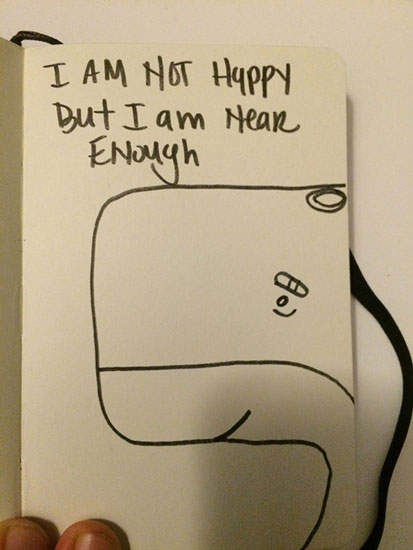 I AM NOT HAppy
But I am NeAR
ENough